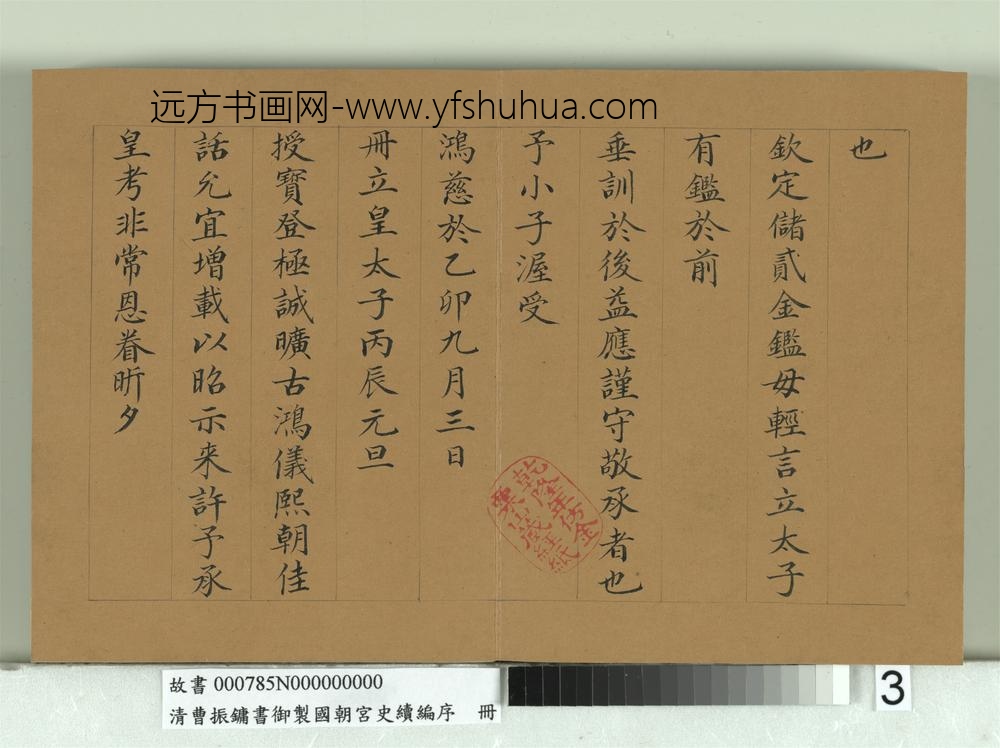 远方书画网-www.yfshuhua.com
也
欽定儲貳金鑑毋輕言立太子
有鑑於前
垂訓於後益應謹守敬承者也
予小子渥受
鴻慈於乙卯九月三日
冊立皇太子丙辰元旦
授寶登極誠曠古鴻儀熙朝佳
話允宜增載以昭示来許予承
皇考非常恩眷昕夕
乾隆年仿金
粟山藏經紙
故書 000785N000000000
清曹振鏞書御製國朝宮史續編序 冊
3